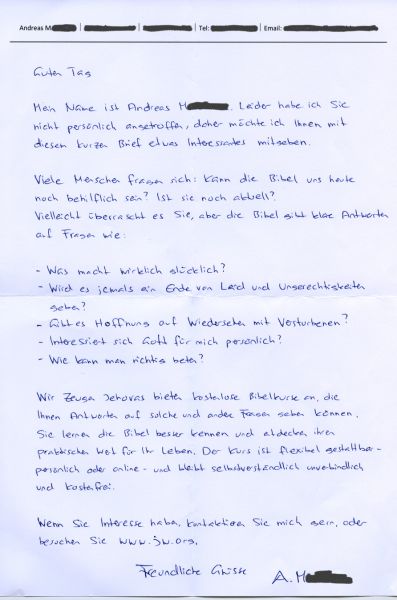 Andreas M | | | Tel: | Email:
Guten Tag
Mein Name ist Andreas M. Leider habe ich Sie
nicht persönlich angetroffen, daher möchte ich Ihnen mit
diesem kurzen Brief etwas Interessantes mitgeben.
Viele Menschen fragen sich: Kann die Bibel uns heute
noch behilflich sein? Ist sie noch aktuell?
Vielleicht überrascht es Sie, aber die Bibel gibt klare Antworten
auf Fragen wie:
- Was macht wirklich glücklich?
- Wird es jemals ein Ende von Leid und Ungerechtigkeiten
geben?
- Gibt es Hoffnung auf Wiedersehen mit Verstorbenen?
- Interessiert sich Gott für mich persönlich?
- Wie kann man richtig beten?
Wir Zeugen Jehovas bieten kostenlose Bibelkurse an, die
Ihnen Antworten auf solche und andere Fragen geben können.
Sie lernen die Bibel besser kennen und entdecken ihren
praktischen Wert für Ihr Leben. Der Kurs ist flexibel gestaltbar -
persönlich oder online - und bleibt selbstverständlich unverbindlich
und kostenfrei.
Wenn Sie Interesse haben, kontaktieren Sie mich gern, oder
besuchen Sie www.jw.org.
Freundliche Grüsse
A. M